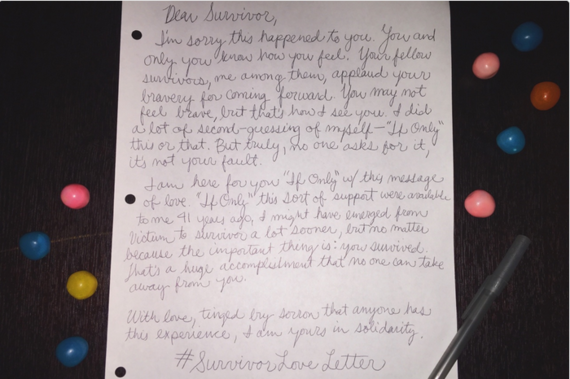 Dear Survivor,
I'm sorry this happened to you. You and
only you know how you feel. Your fellow
survivors, me among them, applaud your
bravery for coming forward. You may not
feel brave, but that's how I see you. I did
a lot of second-guessing of myself—"If Only"
this or that. But truly, no one asks for it,
it's not your fault.
I am here for you "If Only" w/ thy message
of love. "If Only" this sort of support were available
to me 41 years ago, I might have emerged from
Victim to survivor a lot sooner, but no matter
because the important thing is: you survived.
That's a huge accomplishment that no one can take
away from you.
With love, tinged by sorrow that anyone has
this experience, I am yours in solidarity.
#SurvivorLoveLetter